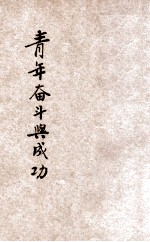 青年奋斗與成功